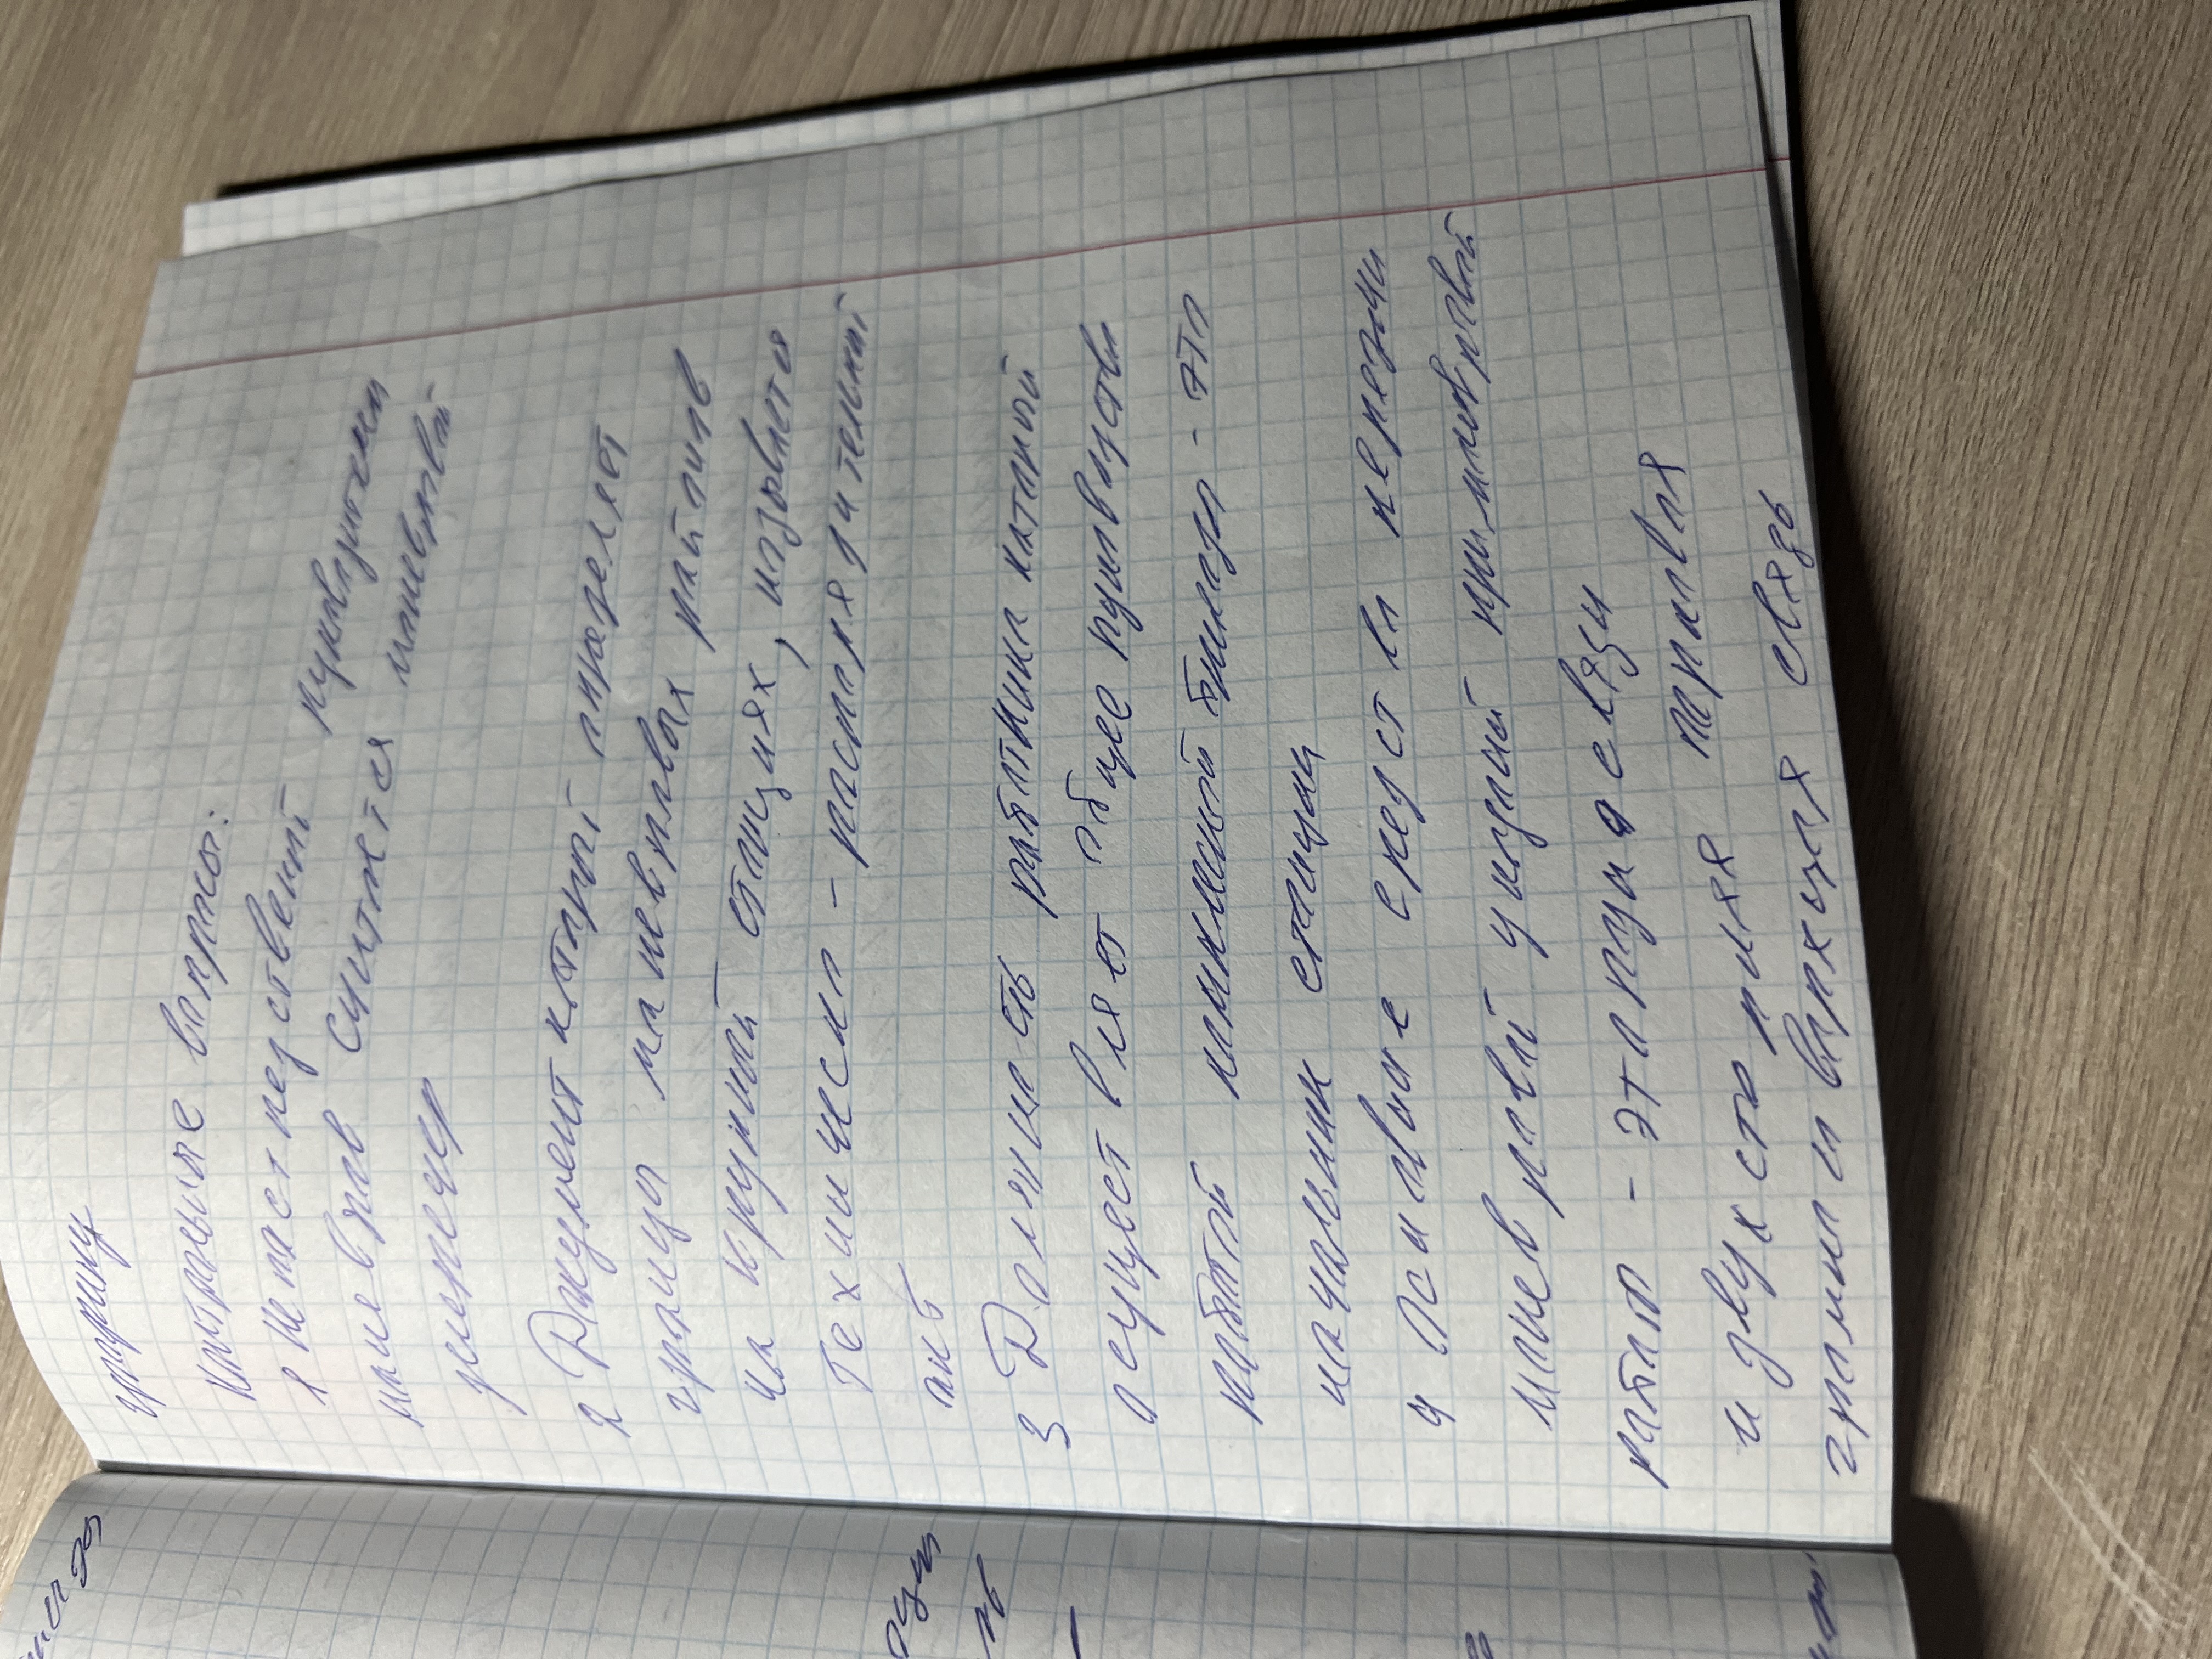 границу
контрольные вопросы:
1 непостредственой руководителем
маневров считается маневровой
диспечер
2 Документ который определяет
границы маневровых районов
на крупной станциях, называется
Техническо - распорядительный
акт
3 Должность работника который
осуществляет общее руководство
работой комплексной бригады - это
начальник станции
4 Основное средства передачи
маневровой указаний при маневровой
работо - это радиосвязи
и двухсторонняя парковая
громкоговорхиля связь